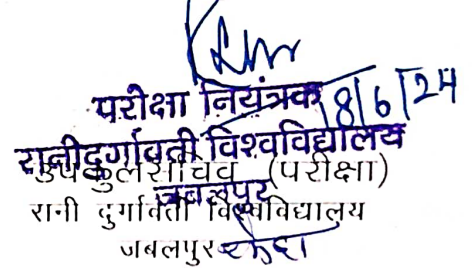 18/6/24
परीक्षा नियंत्रक
रानीदुर्गावती विश्वविद्यालय
जबलपुर
उपकुलसचिव (परीक्षा)
रानी दुर्गावती विश्वविद्यालय
जबलपुर